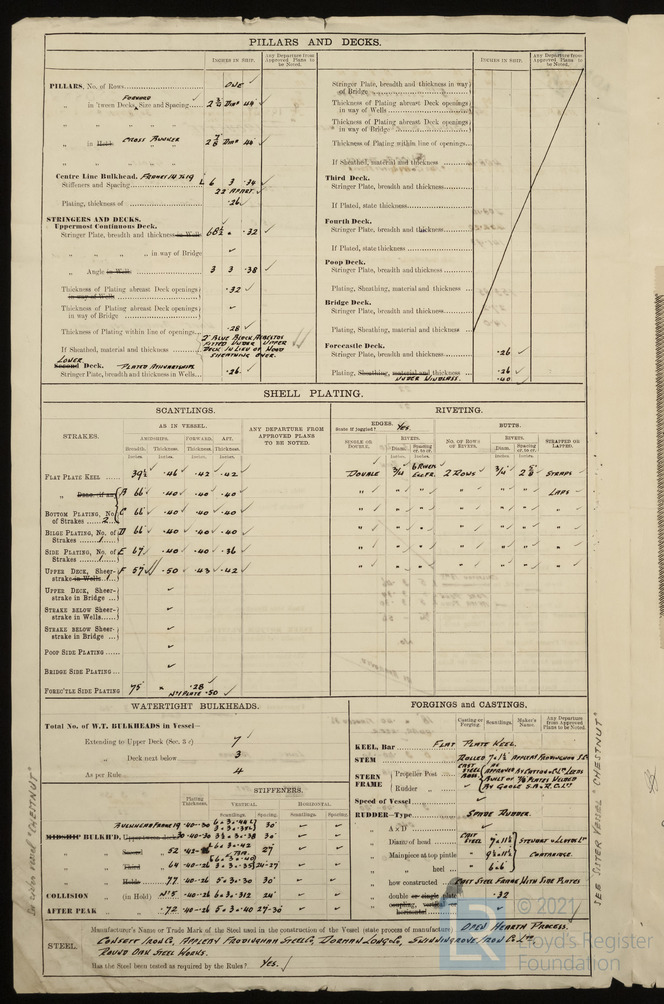 PILLARS AND DECKS.
INCHES IN SHIP.
Any Departure from Approved Plans to be Noted.
INCHES IN SHIP.
Any Departure from Approved Plans to be Noted.
PILLARS, No. of Rows ONE
FORWARD
„ in 'tween Decks, Size and Spacing 44"
„ „ „ „
„ in Hold, CROSS BUNKER 44"
„ „ „ „
Centre Line Bulkhead. FRAMES 14 to 19
Stiffeners and Spacing 6 3 .34
22 APART.
Plating, thickness of .26
STRINGERS AND DECKS.
Uppermost Continuous Deck.
Stringer Plate, breadth and thickness in Wells 68½ .32
„ „ „ „ in way of Bridge
„ Angle in Wells 3 3 .38
Thickness of Plating abreast Deck openings in way of Wells .32
Thickness of Plating abreast Deck openings in way of Bridge
Thickness of Plating within line of openings .28
If Sheathed, material and thickness
FITTED UNDER UPPER
DECK IN LIEU OF WOOD
SHEATHING OVER.
LOWER
Second Deck. PLATED ATHWARTSHIPS
Stringer Plate, breadth and thickness in Wells .26
Stringer Plate, breadth and thickness in way of Bridge
Thickness of Plating abreast Deck openings in way of Wells
Thickness of Plating abreast Deck openings in way of Bridge
Thickness of Plating within line of openings
If Sheathed, material and thickness
Third Deck.
Stringer Plate, breadth and thickness
If Plated, state thickness
Fourth Deck.
Stringer Plate, breadth and thickness
If Plated, state thickness
Poop Deck.
Stringer Plate, breadth and thickness
Plating, Sheathing, material and thickness
Bridge Deck.
Stringer Plate, breadth and thickness
Plating, Sheathing, material and thickness
Forecastle Deck.
Stringer Plate, breadth and thickness .26
Plating, Sheathing, material and thickness .26
UNDER WINDLASS. .40
SHELL PLATING.
SCANTLINGS.
RIVETING.
STRAKES.
AS IN VESSEL.
AMIDSHIPS. FORWARD. AFT.
Breadth. Thickness. Thickness. Thickness.
Inches. Inches. Inches. Inches.
ANY DEPARTURE FROM APPROVED PLANS TO BE NOTED.
EDGES. State if joggled? Yes.
SINGLE OR DOUBLE.
RIVETS.
BUTTS.
NO. OF ROWS OF RIVETS.
RIVETS.
STRAPPED OR LAPPED.
FLAT PLATE KEEL 39½ .46 .42 .42 DOUBLE ¾ 2 ROWS ¾ STRAPS
„ Dbng. (if any) A 66 .40 .40 .40 „ „ „ „ „ „ LAPS
BOTTOM PLATING, No. of Strakes 2 C 66 .40 .40 .40 „ „ „ „ „ „ „
BILGE PLATING, No. of Strakes 1 D 66 .40 .40 .40 „ „ „ „ „ „ „
SIDE PLATING, No. of Strakes 1 E 67 .40 .40 .36 „ „ „ „ „ „ „
UPPER DECK, Sheerstrake in Wells 1 F 57 .50 .43 .42 „ „ „ „ „ „ „
UPPER DECK, Sheerstrake in Bridge
STRAKE BELOW Sheerstrake in Wells
STRAKE BELOW Sheerstrake in Bridge
POOP SIDE PLATING
BRIDGE SIDE PLATING
FORECASTLE SIDE PLATING 75 .28
PLATE .50
WATERTIGHT BULKHEADS.
Total No. of W.T. BULKHEADS in Vessel—
Extending to Upper Deck (Sec. 3 c) 7
„ Deck next below 3
As per Rule 4
STIFFENERS.
Plating Thickness.
VERTICAL. HORIZONTAL.
Scantlings. Spacing. Scantlings. Spacing.
BULKHEAD FRAME 19 .40-.30 30
MIDSHIP BULKH'D, Uppertween decks 30 .40-.30 30
„ Second „ 52 27
„ Third „ 64 .40-.26 24-27
„ Holds 77 .40-.26 5.3.30 30
COLLISION (in Hold) No 5 .40-.26 24
AFTER PEAK „ 72 .40-.26 5.3.40 27-30
FORGINGS and CASTINGS.
Casting or Forging. Scantlings. Maker's Name. Any Departure from Approved Plans to be Noted.
KEEL, Bar FLAT PLATE KEEL.
STEM ROLLED 7×1½
STERN FRAME
Propeller Post
Rudder „
BUILT OF PLATES WELDED
BY GOOLE S.B. & R. Co Ltd
Speed of Vessel
RUDDER—Type SPADE RUDDER.
„ A x D
„ Diam. of head CAST STEEL STEWART & LLOYDS Ltd
„ Mainpiece at top pintle COATBRIDGE.
„ „ heel
„ how constructed CAST STEEL FRAME WITH SIDE PLATES
„ double or single plate .32
„ coupling, vertical or horizontal
STEEL.
Manufacturer's Name or Trade Mark of the Steel used in the construction of the Vessel (state process of manufacture) OPEN HEARTH PROCESS.
CONSETT IRON Co, APPLEBY FRODINGHAM STEEL Co, DORMAN LONG & Co, SKINNINGROVE IRON Co Ltd
ROUND OAK STEEL WORKS.
Has the Steel been tested as required by the Rules? YES.
SEE SISTER VESSEL "CHESTNUT"
© 2021
LR
Lloyd's Register
Foundation